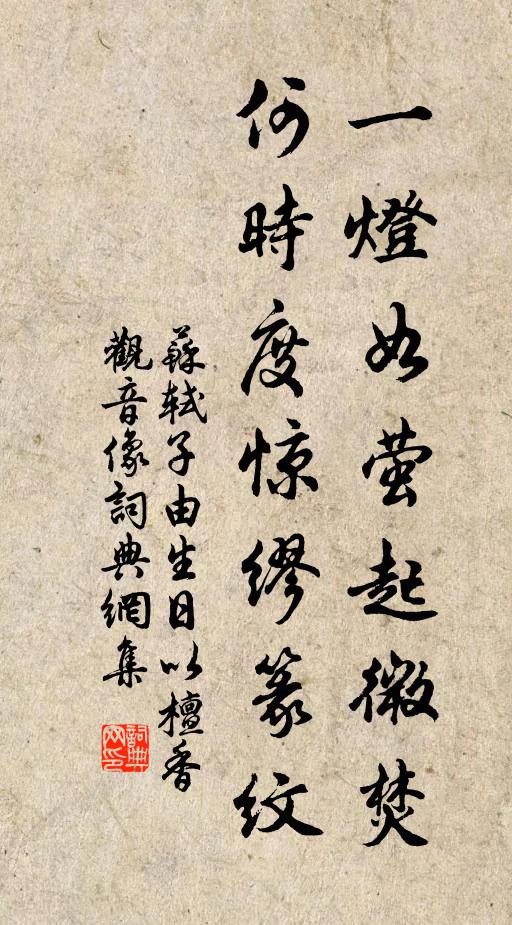 一燈如萤起微焚
何時度惊缪篆紋
蘇軾子由生日以檀香
觀音像詞典網集
詞典
网印